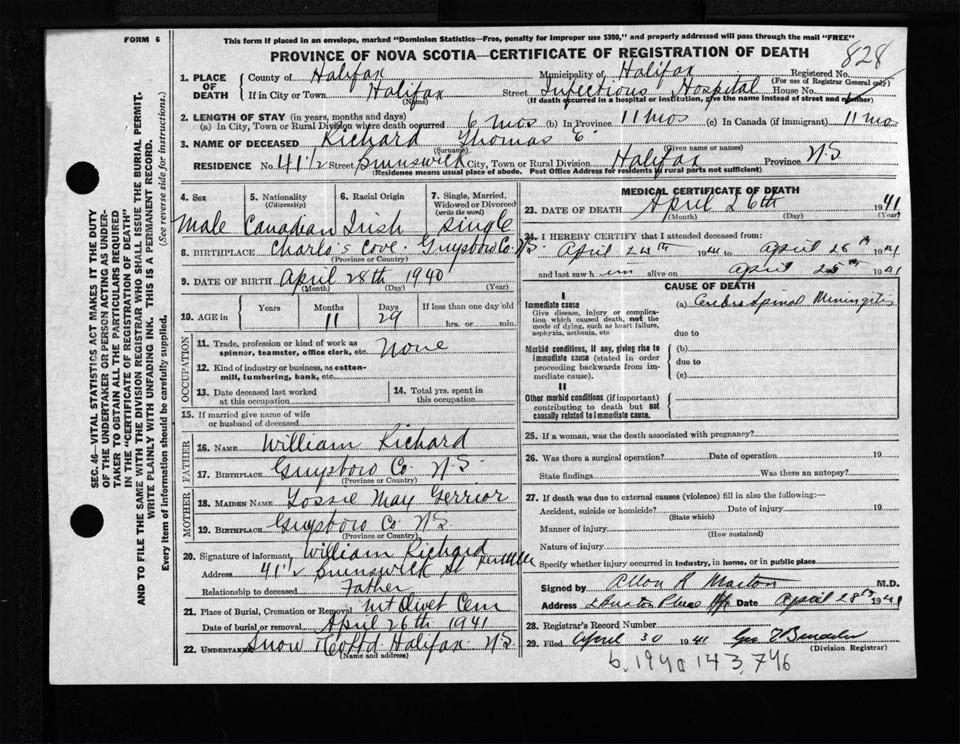 FORM 6
This form if placed in an envelope, marked "Dominion Statistics—Free, penalty for improper use $300," and properly addressed will pass through the mail "FREE"
PROVINCE OF NOVA SCOTIA—CERTIFICATE OF REGISTRATION OF DEATH
828
1. PLACE OF DEATH
County of Halifax Municipality of Halifax Registered No.
(For use of Registrar General only)
If in City or Town Halifax Street Infectious Hospital House No.
(Name) (If death occurred in a hospital or institution, give the name instead of street and number)
2. LENGTH OF STAY (in years, months and days)
(a) In City, Town or Rural Division where death occurred 6 mos (b) In Province 11 mos (c) In Canada (if immigrant) 11 mo
3. NAME OF DECEASED Richard Thomas E.
(Surname) (Given name or names)
RESIDENCE No. 41 1/2 Street Brunswick City, Town or Rural Division Halifax Province N.S
(Residence means usual place of abode. Post Office Address for residents in rural parts not sufficient)
4. Sex 5. Nationality (Citizenship) 6. Racial Origin 7. Single, Married, Widowed or Divorced (write the word)
Male Canadian Irish Single
8. BIRTHPLACE Charlo's Cove. Guysboro Co. N.S.
(Province or Country)
9. DATE OF BIRTH April 28th 1940
(Month) (Day) (Year)
10. AGE in Years Months Days If less than one day old
11 29 hrs. or min.
OCCUPATION
11. Trade, profession or kind of work as spinner, teamster, office clerk, etc. None
12. Kind of industry or business, as cotton-mill, lumbering, bank, etc.
13. Date deceased last worked at this occupation
14. Total yrs. spent in this occupation
15. If married give name of wife or husband of deceased
FATHER
16. NAME William Richard
17. BIRTHPLACE Guysboro Co N.S.
(Province or Country)
MOTHER
18. MAIDEN NAME Lossie May Gerrior
19. BIRTHPLACE Guysboro Co N.S
(Province or Country)
20. Signature of informant William Richard
Address 41 1/2 Brunswick St
Relationship to deceased Father
21. Place of Burial, Cremation or Removal Mt Olivet Cem
Date of burial or removal April 26th 1941
22. Undertaker Snow & Co Ltd Halifax N.S
(Name and address)
MEDICAL CERTIFICATE OF DEATH
23. DATE OF DEATH April 26th 1941
(Month) (Day) (Year)
24. I HEREBY CERTIFY that I attended deceased from:
April 1941 to April 1941
and last saw him alive on April 25th 1941
CAUSE OF DEATH
I
Immediate cause
Give disease, injury or complication which caused death, not the mode of dying, such as heart failure, asphyxia, asthenia, etc
(a) Cerebrospinal Miningitis
due to
Morbid conditions, if any, giving rise to immediate cause (stated in order proceeding backwards from immediate cause).
(b)
due to
(c)
II
Other morbid conditions (if important) contributing to death but not causally related to immediate cause.
25. If a woman, was the death associated with pregnancy?
26. Was there a surgical operation? Date of operation 19
State findings Was there an autopsy?
27. If death was due to external causes (violence) fill in also the following:—
Accident, suicide or homicide? Date of injury 19
(State which)
Manner of injury
(How sustained)
Nature of injury
Specify whether injury occurred in industry, in home, or in public place
Signed by Allan R Morton M.D.
Address Place Hfx Date April 28th 1941
28. Registrar's Record Number
29. Filed April 30 1941 Geo
(Division Registrar)
b. 1940 143,746
SEC. 46—VITAL STATISTICS ACT MAKES IT THE DUTY
OF THE UNDERTAKER OR PERSON ACTING AS UNDER-
TAKER TO OBTAIN ALL THE PARTICULARS REQUIRED
IN THE "CERTIFICATE OF REGISTRATION OF DEATH"
AND TO FILE THE SAME WITH THE DIVISION REGISTRAR WHO SHALL ISSUE THE BURIAL PERMIT.
WRITE PLAINLY WITH UNFADING INK. THIS IS A PERMANENT RECORD.
Every item of information should be carefully supplied. (See reverse side for instructions.)